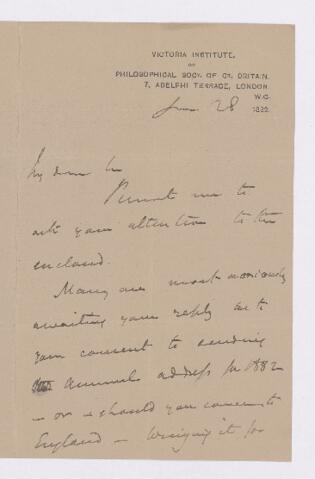 VICTORIA INSTITUTE,
OR
PHILOSOPHICAL SOCY. OF GT. BRITAIN.
7, ADELPHI TERRACE, LONDON.
W.C.
28 1882.
My dear Sir
Permit me to
ask your attention to the
enclosed.
Many are most anxiously
awaiting your reply as to
your consent to sending
Annual address for 1882
– or – should you come to
England – bringing it for